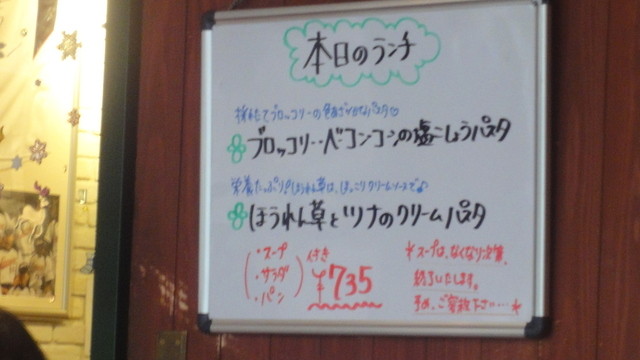 本日のランチ
採れたてブロッコリーの色あざやかなパスタ♡
ブロッコリー・ベーコン・コーンの塩こしょうパスタ
栄養たっぷり!ほうれん草は、ほっこりクリームソースで♪
ほうれん草とツナのクリームパスタ
・スープ
・サラダ
・パン
付き
¥735
*スープは、なくなり次第、
終了いたします。
ご容赦下さい…*